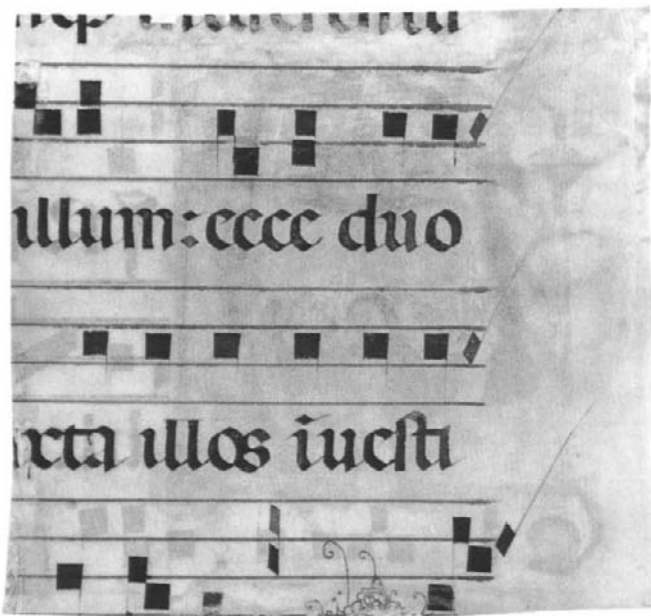 illum: ecce duo
xta illos īuesti